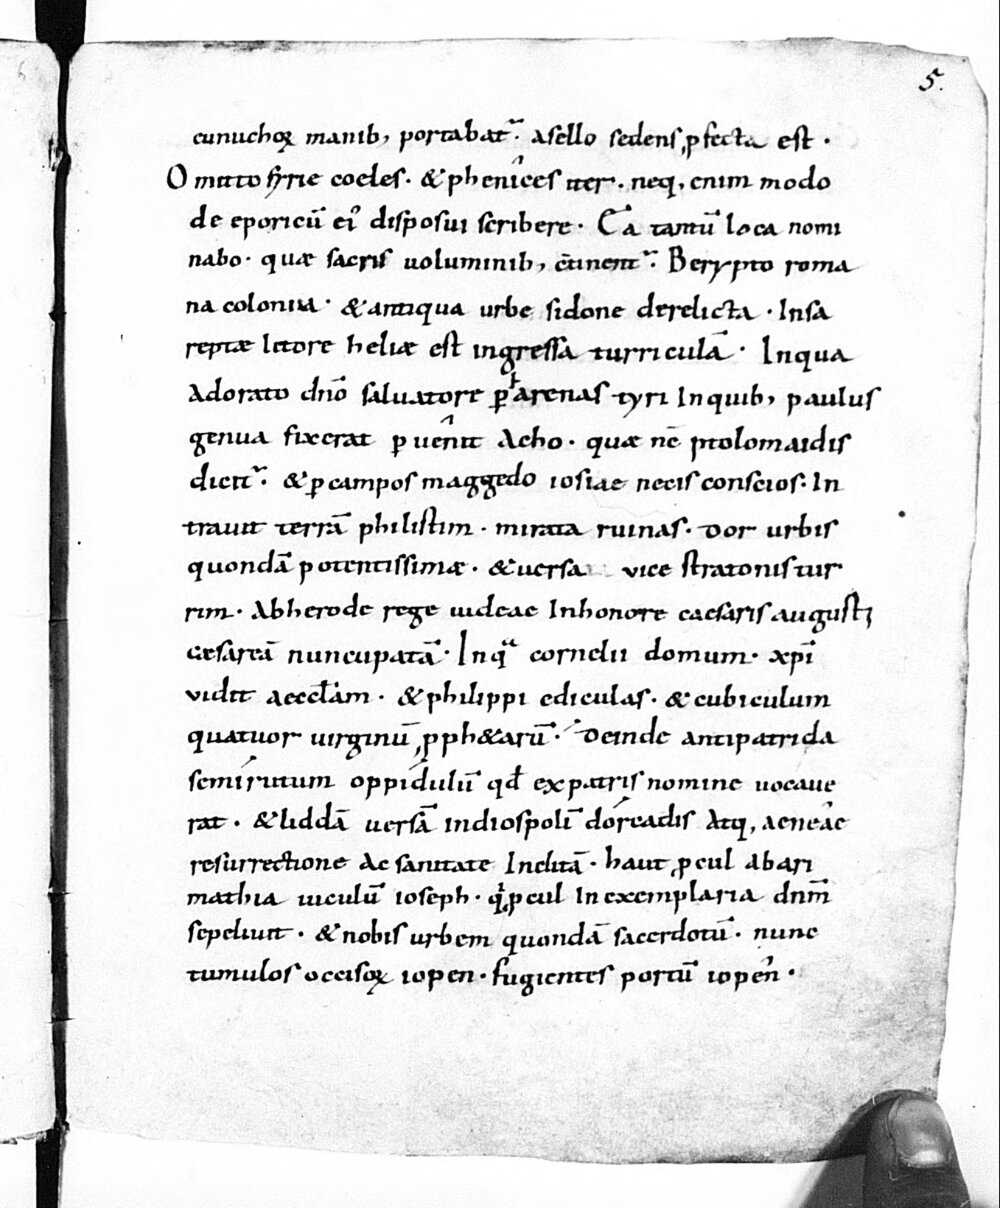 5.
eunuchoꝝ manib, portabat᷑. asello sedens ꝓfecta est .
Omitto syrie coeles. & phenices iter. neq, enim modo
de eporicū ei᾽ disposui scribere. Ea tantū loca nomi
nabo. quæ sacris uoluminib, c̄tinent᷑. Berypto roma
na colonia. & antiqua urbe sidone derelicta. Insa
reptæ litore heliæ est ingressa turriculā. Inqua
Adorato dn̄o saluatore ꝑ arenas tyri Inquib, paulus
genua fixerat ꝑuenit Acho. quæ nc̄ ptolomaidis
dicit᷑. & ꝑ campos maggedo iosiae necis conscios. In
trauit terrā philistim. mirata ruinas. dor urbis
quondā potentissimæ. & uersa uice stratonis tur
rim. Abherode rege iudeae Inhonore caesaris augusti
cesareā nuncupatā. Inqͣ cornelii domum. xp̄i
vidit aeccl̄am. & philippi ediculas. & cubiculum
quatuor uirginū ꝓph&arū. Deinde antipatrida
semirutum oppidulū qd̄ expatris nomine uocaue
rat. & liddā uersā indiospolī dorcadis Atq, aeneae
resurrectione Ac sanitate Inclitā. haut ꝓcul abari
mathia uiculū ioseph. q̇ ꝓcul Inexemplaria dnm̄
sepeliuit. & nobis urbem quondā sacerdotū. nunc
tumulos occisoꝝ iopen. fugientes portū iopen.